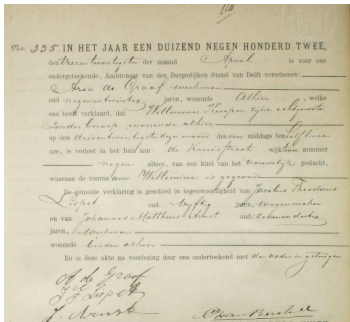 No. 335 IN HET JAAR EEN DUIZEND NEGEN HONDERD TWEE,
den vierentwintigsten der maand April is voor ons
ondergeteekende, Ambtenaar van den Burgerlijken Stand van Delft verschenen:
Arie de Graaf werkman
oud negenentwintig jaren, wonende Alhier, welke
ons heeft verklaard, dat Willemina Kuiper zijne echtgenoote
zonder beroep wonende alhier
op den drieentwintigsten dezer maand des voor middags te half twee
ure, is bevallen in het huis aan de Kruisstraat wijk nummer
negen alhier, van een kind van het vrouwelijk geslacht,
waaraan de voornaam Willemina is gegeven
De gemelde verklaring is geschied in tegenwoordigheid van Jacobus Theodorus
Lispet oud vijftig jaren, wagenmaker
en van Johannes Mattheus Arnst oud
jaren, werkman
wonende beiden alhier
En is deze akte na voorlezing door ons onderteekend met den vader en getuigen
A de Graaf
J T Lispet
J. Arnst